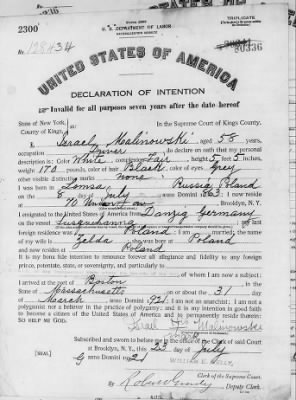 TRIPLICATE
2300
U. S. DEPARTMENT OF LABOR
NATURALIZATION SERVICE
No. 128434
80336
UNITED STATES OF AMERICA
DECLARATION OF INTENTION
Invalid for all purposes seven years after the date hereof
State of New York,
County of Kings,
In the Supreme Court of Kings County.
I, Israel Malinowski, aged 58 years,
occupation, do declare on oath that my personal
description is: Color White, complexion Fair, height 5 feet 2 inches,
weight 170 pounds, color of hair Black, color of eyes Grey
other visible distinctive marks none
I was born in Lomsa Russia Poland
on the 8 day of July, anno Domini 1863; I now reside
at 70, Brooklyn, N.Y.
I emigrated to the United States of America from Danzig Germany
on the vessel Susquehanna; my last
foreign residence was Poland; I am married; the name
of my wife is Zelda; she was born at Poland
and now resides at Poland
It is my bona fide intention to renounce forever all allegiance and fidelity to any foreign
prince, potentate, state, or sovereignty, and particularly to
of whom I am now a subject;
I arrived at the port of Boston, in the
State of Massachusetts, on or about the 31 day
of March, anno Domini 1921; I am not an anarchist; I am not a
polygamist nor a believer in the practice of polygamy; and it is my intention in good faith
to become a citizen of the United States of America and to permanently reside therein:
SO HELP ME GOD.
Malinowski
Subscribed and sworn to before me in the office of the Clerk of said Court
at Brooklyn, N.Y., this 23 day of July
anno Domini 1921
[SEAL]
WILLIAM E. KELLY
Clerk of the Supreme Court.
Deputy Clerk.